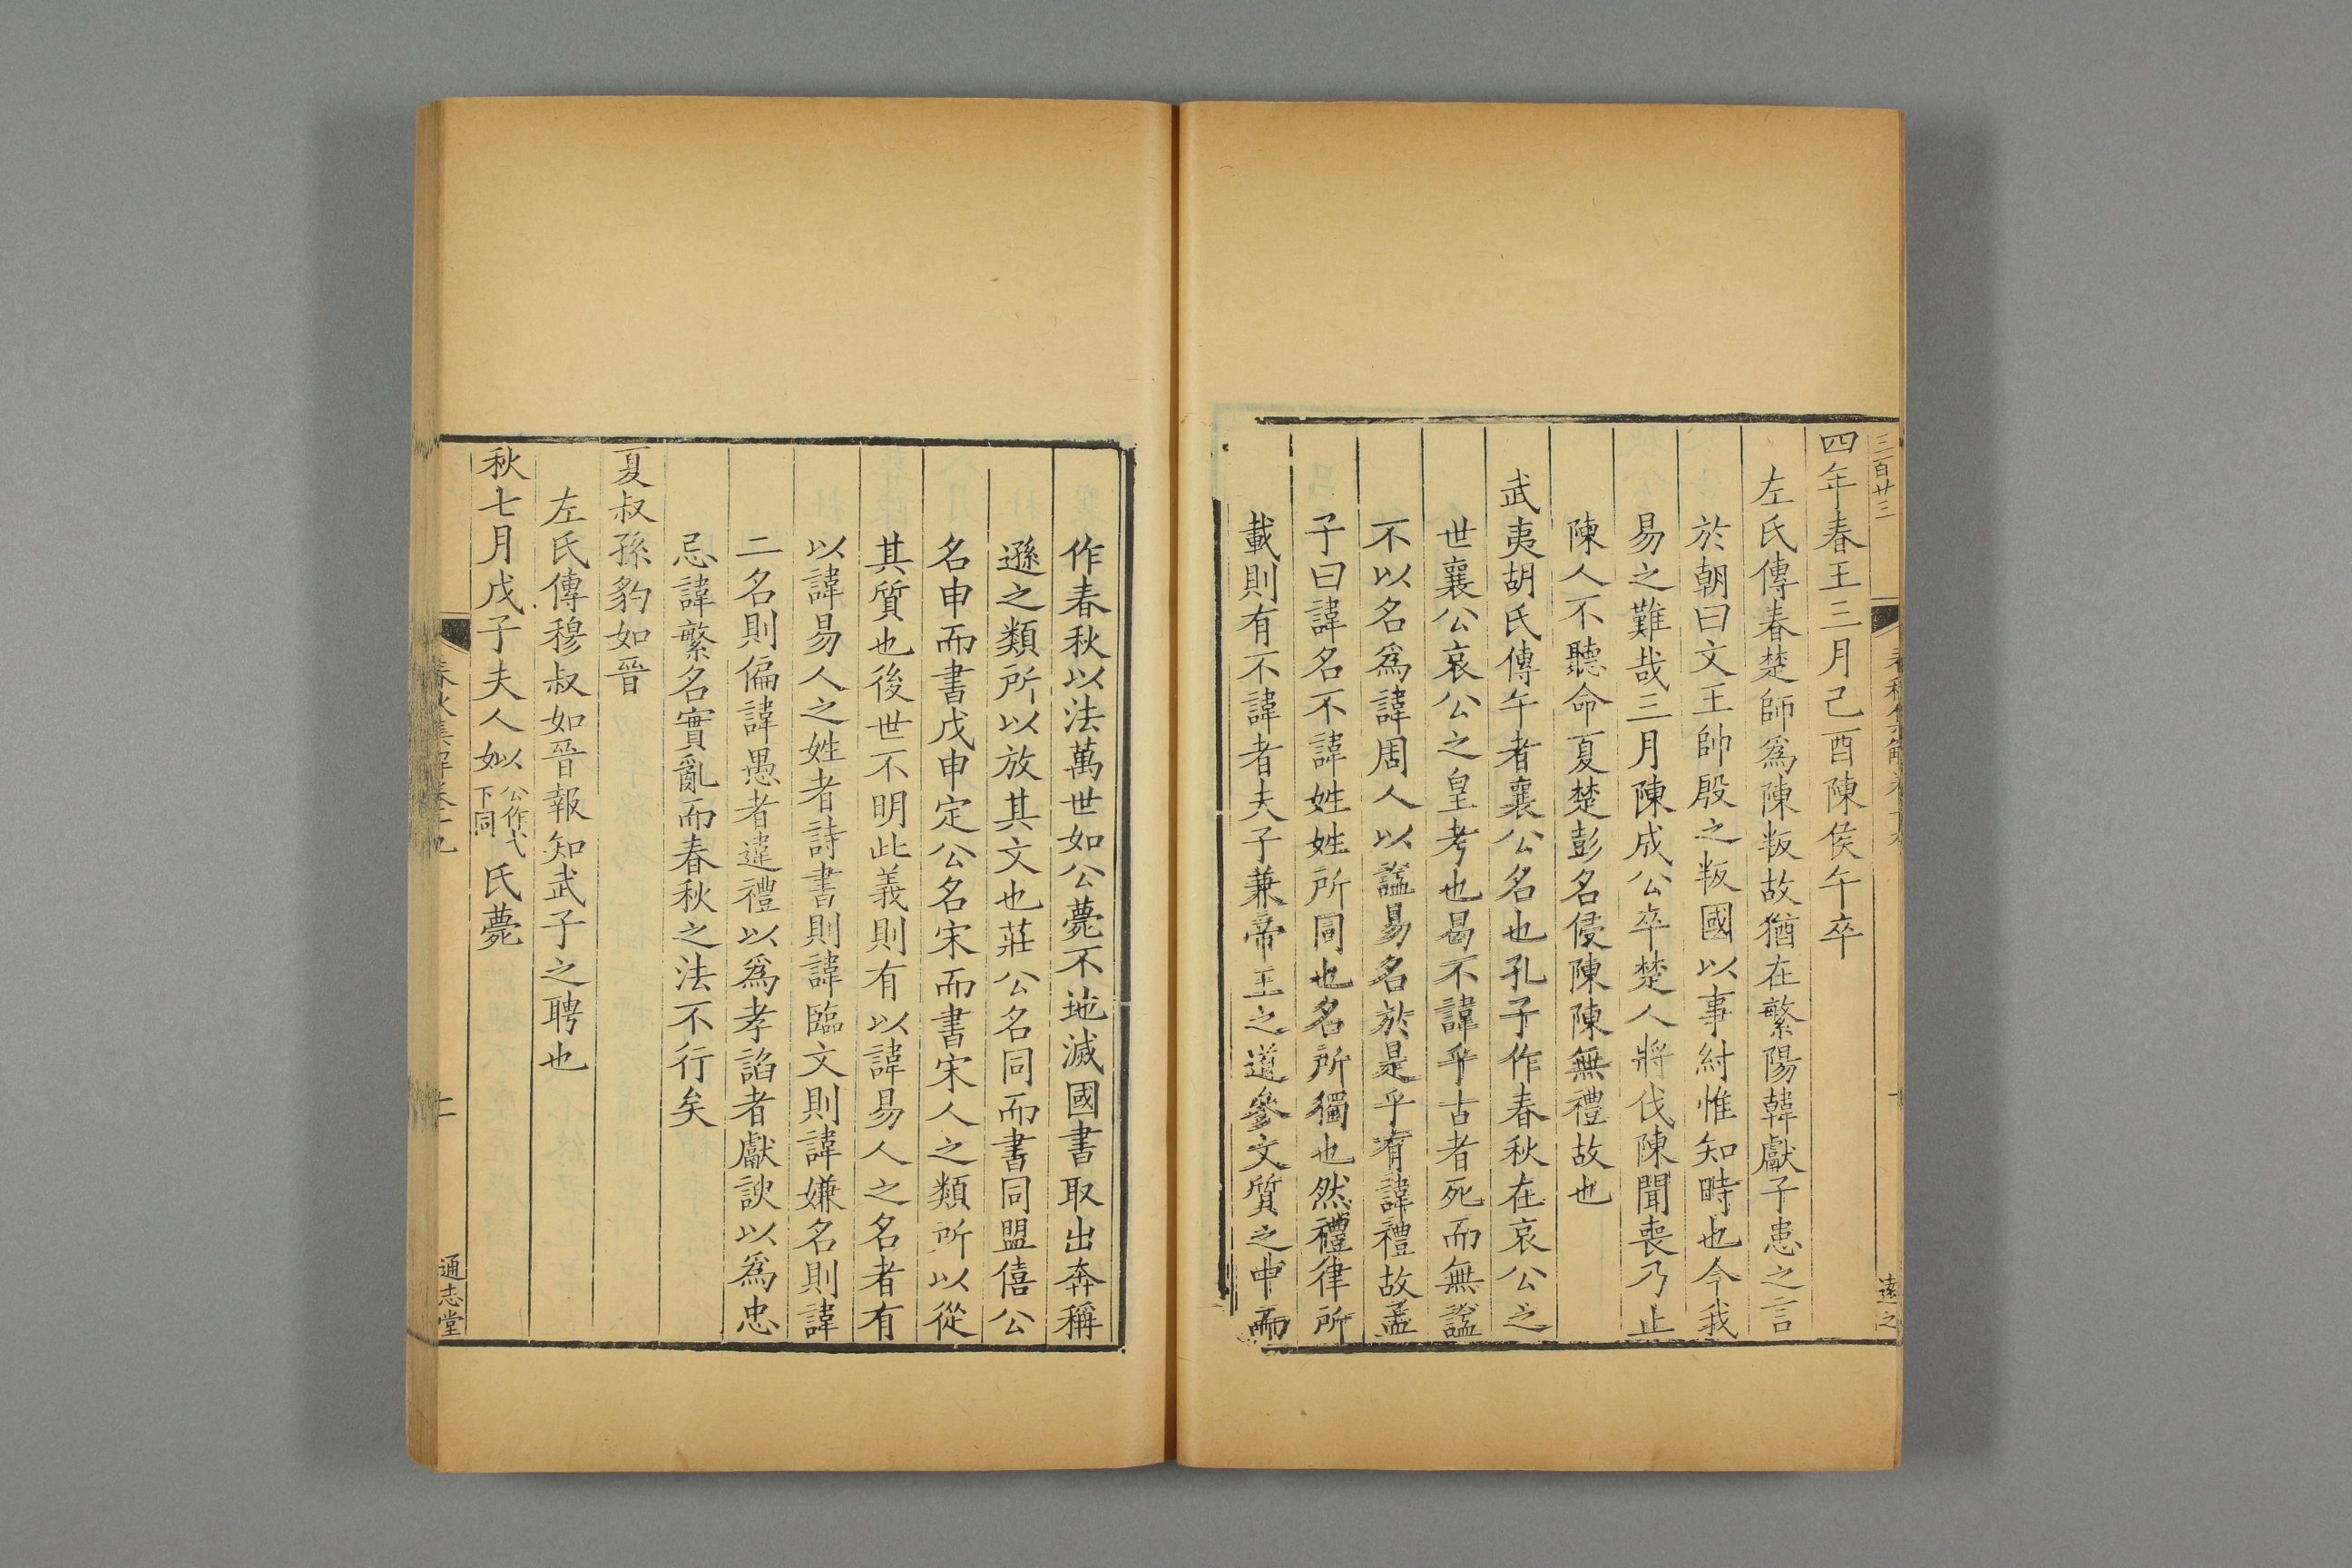 三百廿三
遠之
四年春王三月己酉陳侯午卒
左氏傳春楚師爲陳叛故猶在繁陽韓獻子患之言
於朝曰文王帥殷之叛國以事紂惟知時也今我
易之難哉三月陳成公卒楚人將伐陳聞喪乃止
陳人不聽命夏楚彭名侵陳陳無禮故也
武夷胡氏傳午者襄公名也孔子作春秋在哀公之
世襄公哀公之皇考也曷不諱乎古者死而無諡
不以名爲諱周人以諡易名於是乎有諱禮故孟
子曰諱名不諱姓姓所同也名所獨也然禮律所
載則有不諱者夫子兼帝王之道參文質之中而
作春秋以法萬世如公薨不地滅國書取出奔稱
遜之類所以放其文也莊公名同而書同盟僖公
名申而書戊申定公名宋而書宋人之類所以從
其質也後世不明此義則有以諱易人之名者有
以諱易人之姓者詩書則諱臨文則諱嫌名則諱
二名則偏諱愚者違禮以爲孝諂者獻諛以爲忠
忌諱繁名實亂而春秋之法不行矣
夏叔孫豹如晉
左氏傳穆叔如晉報知武子之聘也
秋七月戊子夫人姒公作弋下同氏薨
春秋集解卷十九
二
通志堂